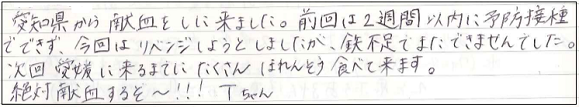 愛知県から献血をしに来ました。前回は2週間以内に予防接種
でできず、今回はリベンジしようとしましたが、鉄不足でまたできませんでした。
次回愛媛に来るまでにたくさんほれんそう食べて来ます。
絶対献血するぞ〜!!! Tちゃん